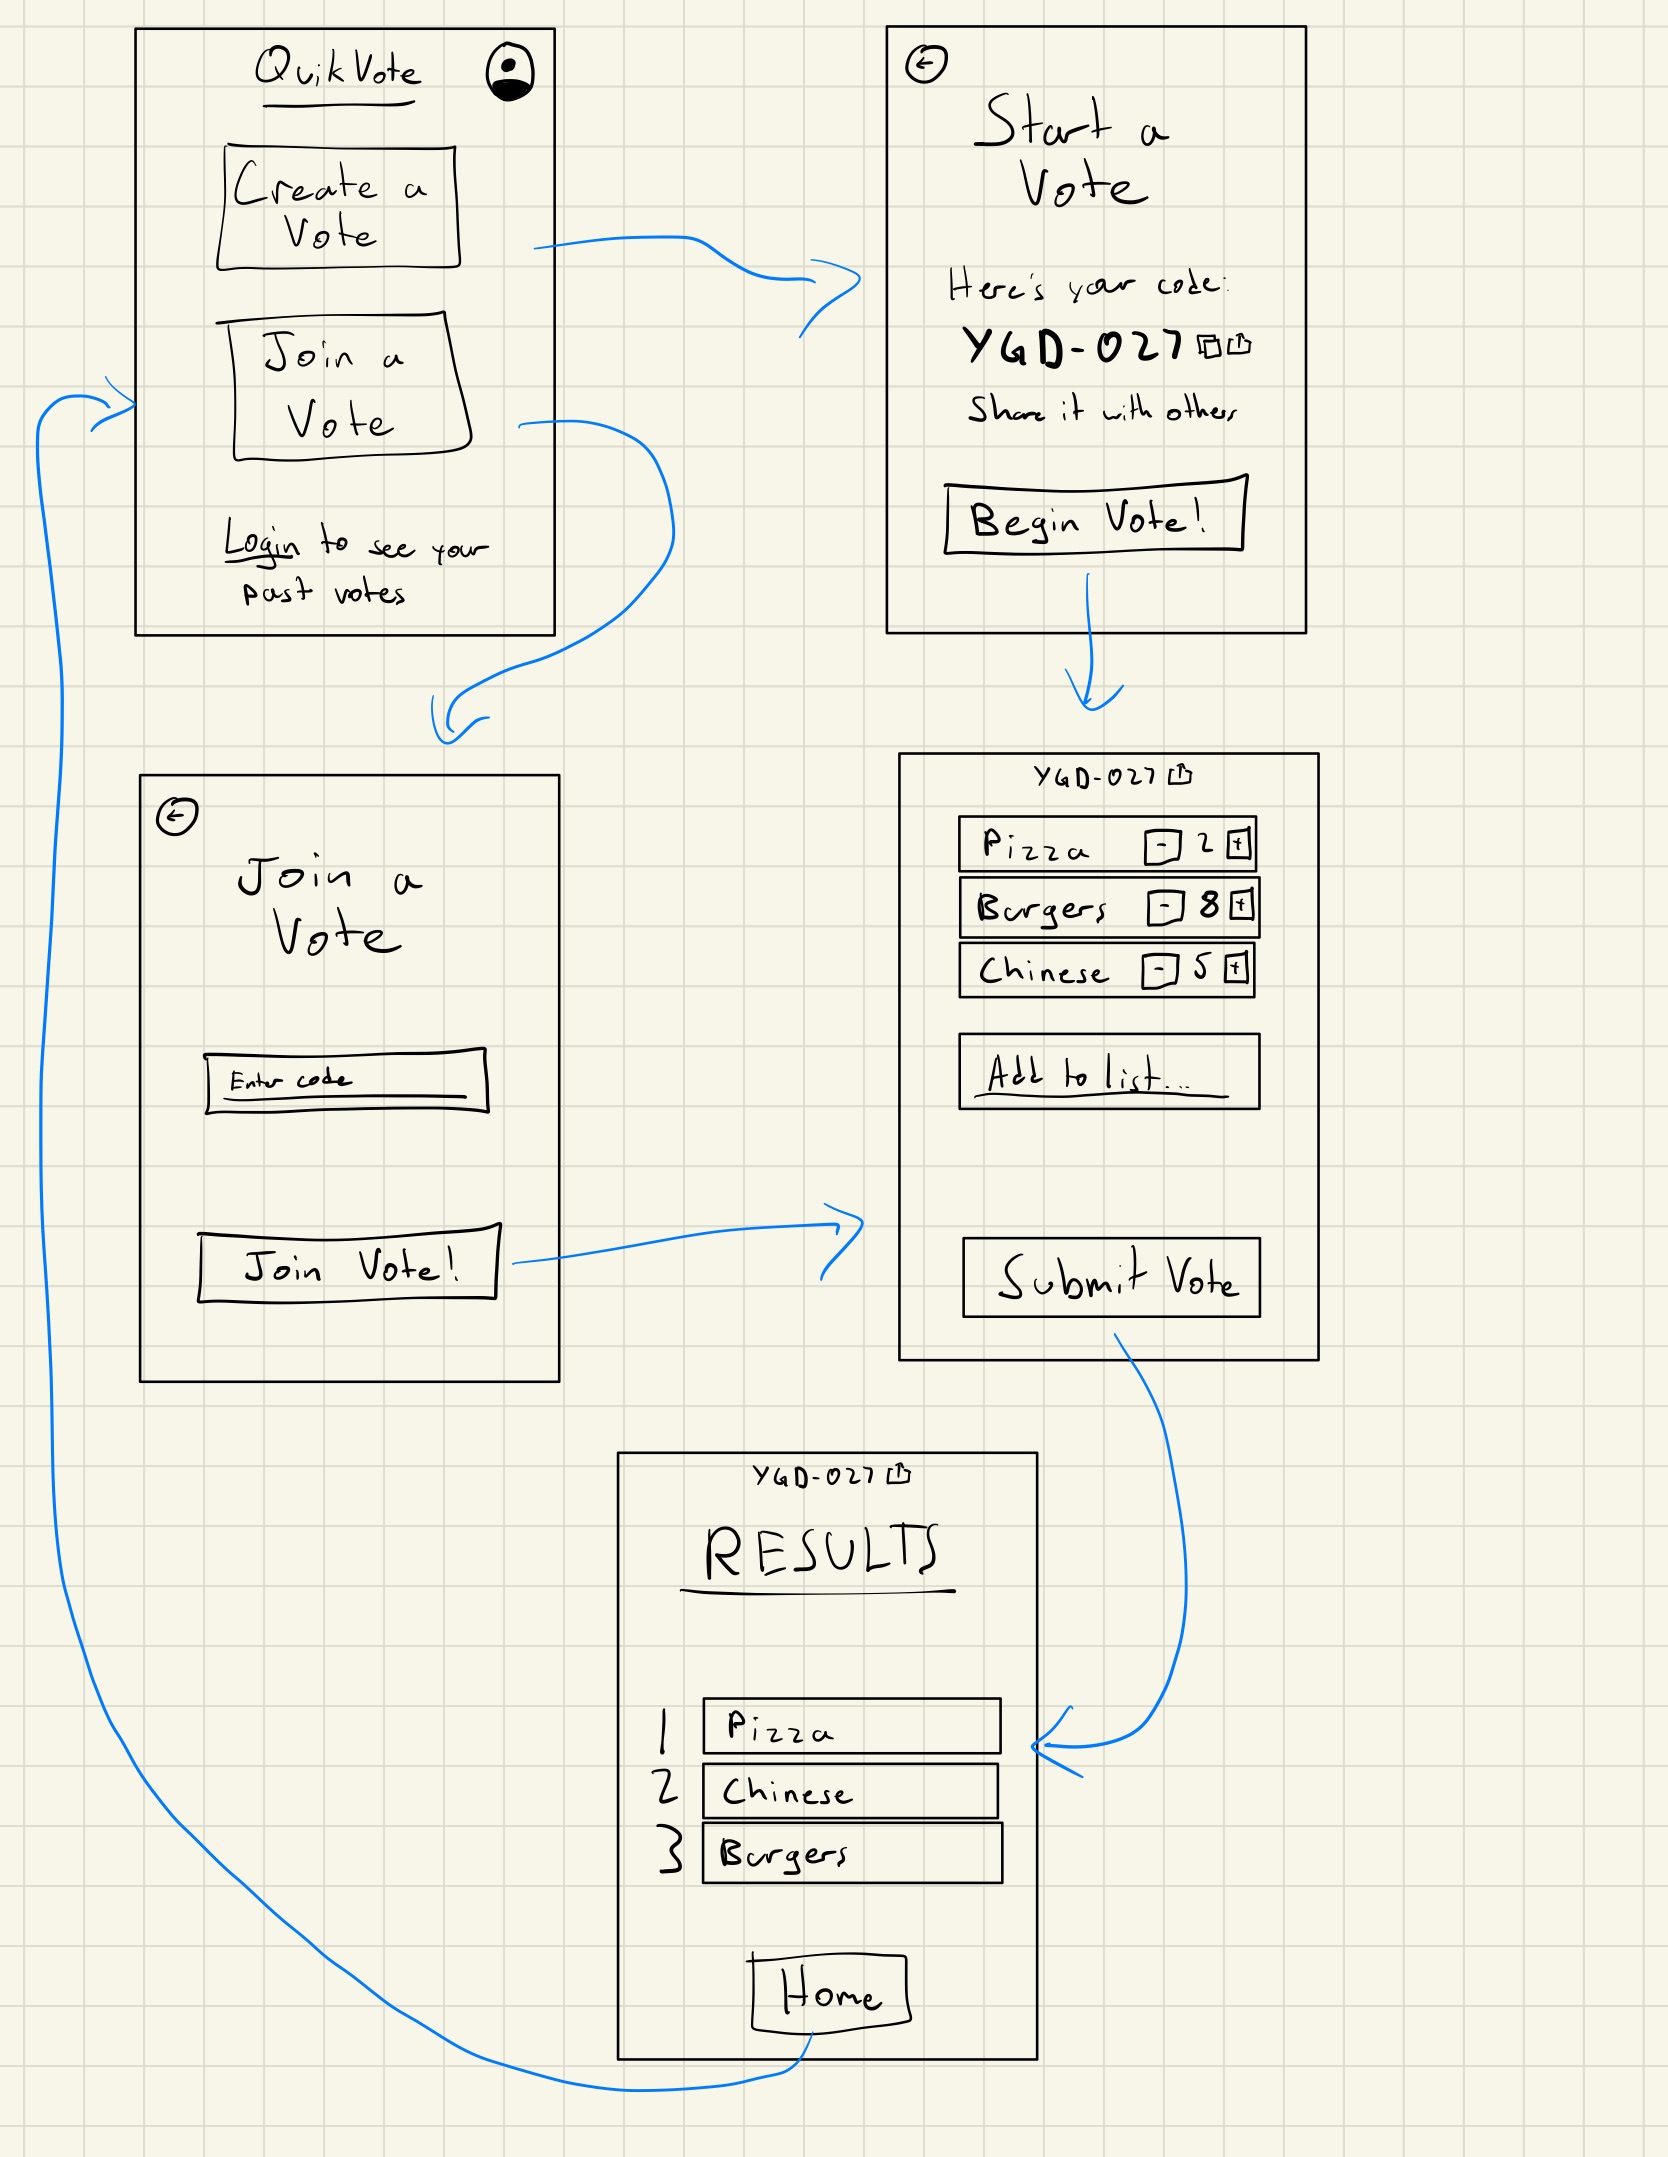 QuikVote
Create a
Vote
Join a
Vote
Login to see your
past votes
Start a
Vote
Here's your code:
YGD-027
Share it with others
Begin Vote!
Join a
Vote
Enter code
Join Vote!
YGD-027
Pizza - 2 +
Burgers - 8 +
Chinese - 5 +
Add to list...
Submit Vote
YGD-027
RESULTS
1 Pizza
2 Chinese
3 Burgers
Home